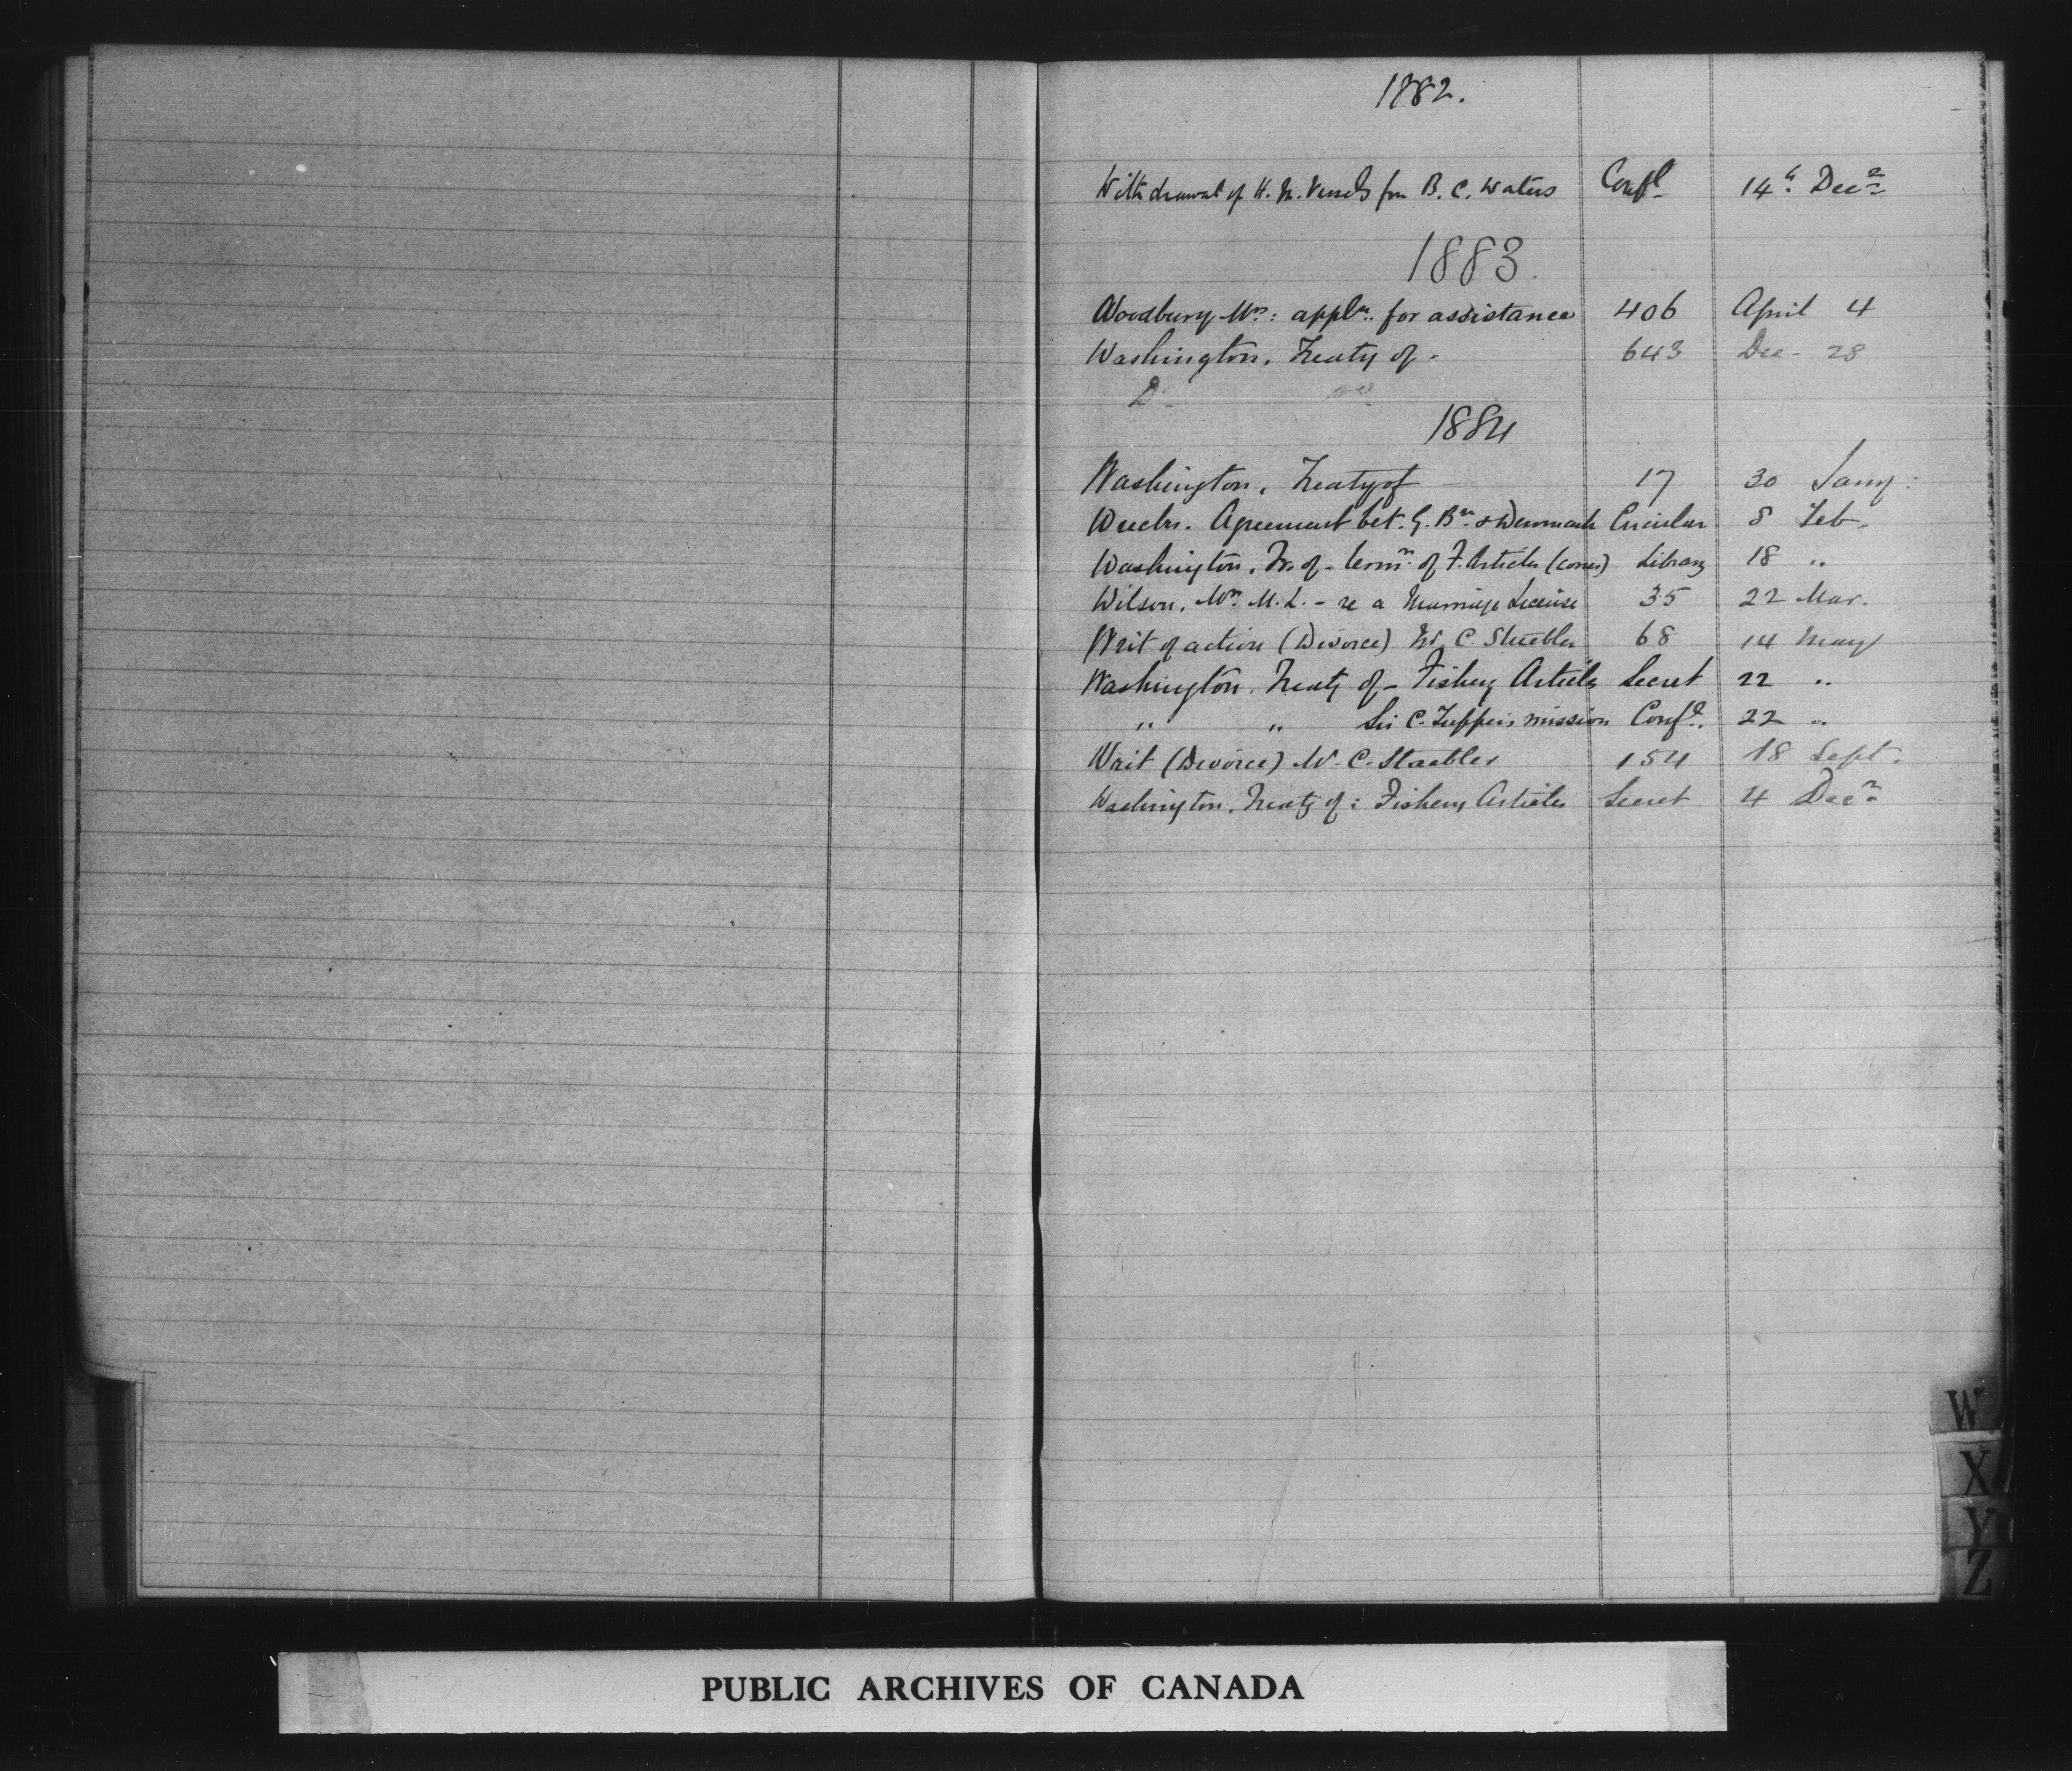 1882.
Withdrawal of H. M. Vessels from B. C. Waters Confl 14th Decr
1883.
Woodbury Mrs: appln. for assistance 406 April 4
Washington, Treaty of - 643 Dec - 28
Do
1884
Washington, Treaty of 17 30 Jany:
Wrecks. Agreement bet. G. Bn. & Denmark Circular 8 Feb.
Washington, Tr. of - termn. of F. Articles (corres) Library 18 "
Wilson, Wm. M. L. - re a Marriage License 35 22 Mar.
Writ of action (Divorce) W. C. Staebler 68 14 May
Washington, Treaty of - Fishery Articles Secret 22 "
" " Sir C. Tupper's mission Confl. 22 "
Writ (Divorce) W. C. Staebler 154 18 Sept.
Washington, Treaty of: Fishery Articles Secret 4 Decr
W
X
Y
Z
PUBLIC ARCHIVES OF CANADA